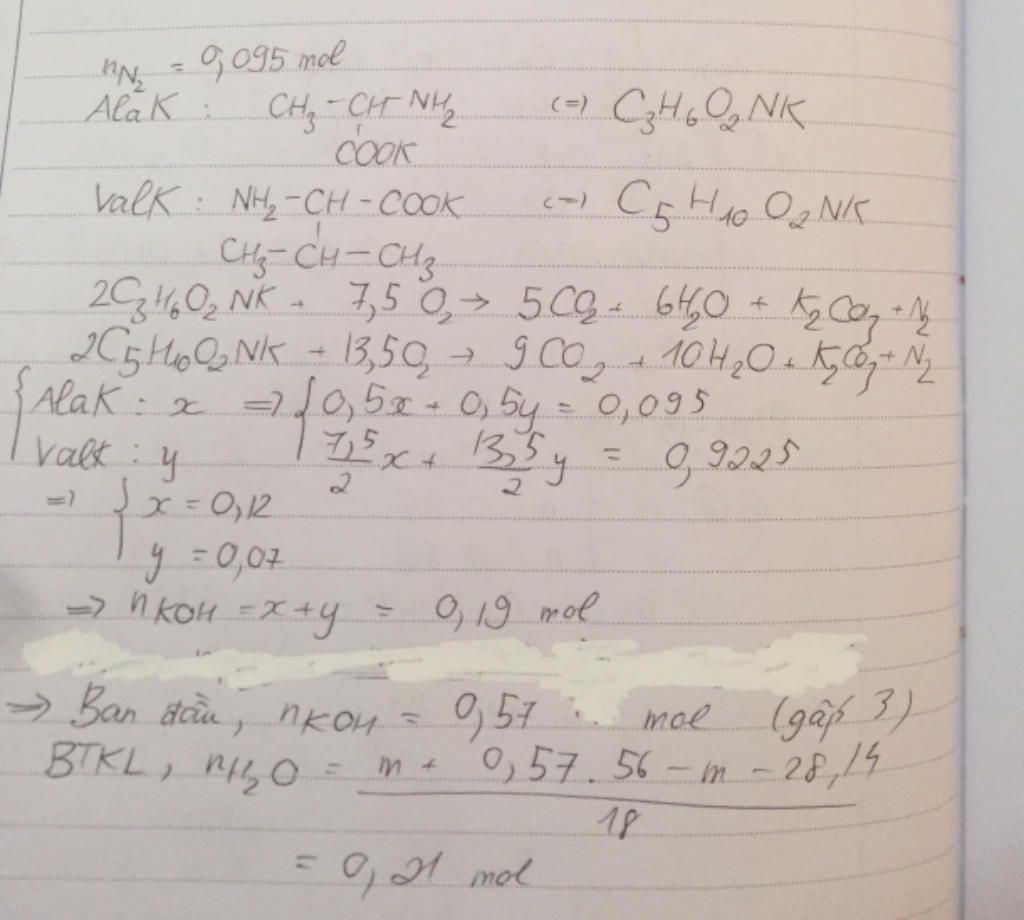 nN₂ = 0,095 mol
AlaK : CH₃ - CH - NH₂ (=) C₃H₆O₂NK
COOK
ValK : NH₂ - CH - COOK (=) C₅H₁₀O₂NK
CH₃ - CH - CH₃
2C₃H₆O₂NK + 7,5 O₂ → 5CO₂ + 6H₂O + K₂CO₃ + N₂
2C₅H₁₀O₂NK + 13,5O₂ → 9CO₂ + 10H₂O + K₂CO₃ + N₂
{ AlaK : x => { 0,5x + 0,5y = 0,095
ValK : y 7,5/2 x + 13,5/2 y = 0,9225
=> { x = 0,12
y = 0,07
=> nKOH = x + y = 0,19 mol
=> Ban đầu, nKOH = 0,57 mol (gấp 3)
BTKL, nH₂O = m + 0,57.56 - m - 28,14
18
= 0,21 mol